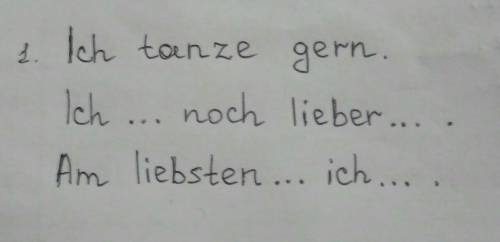 1. Ich tanze gern.
Ich ... noch lieber ... .
Am liebsten ... ich ... .